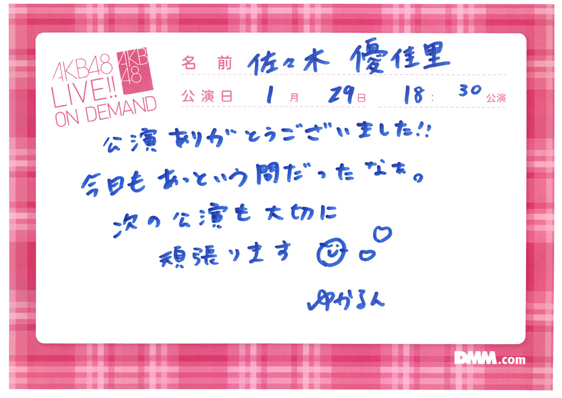 AKB48
LIVE!!
ON DEMAND
AKB
48
名 前 佐々木 優佳里
公演日 1 月 29 日 18 : 30 公演
公演ありがとうございました!!
今日もあっという間だったなぁ。
次の公演も大切に
頑張ります
ゆかるん
DMM.com